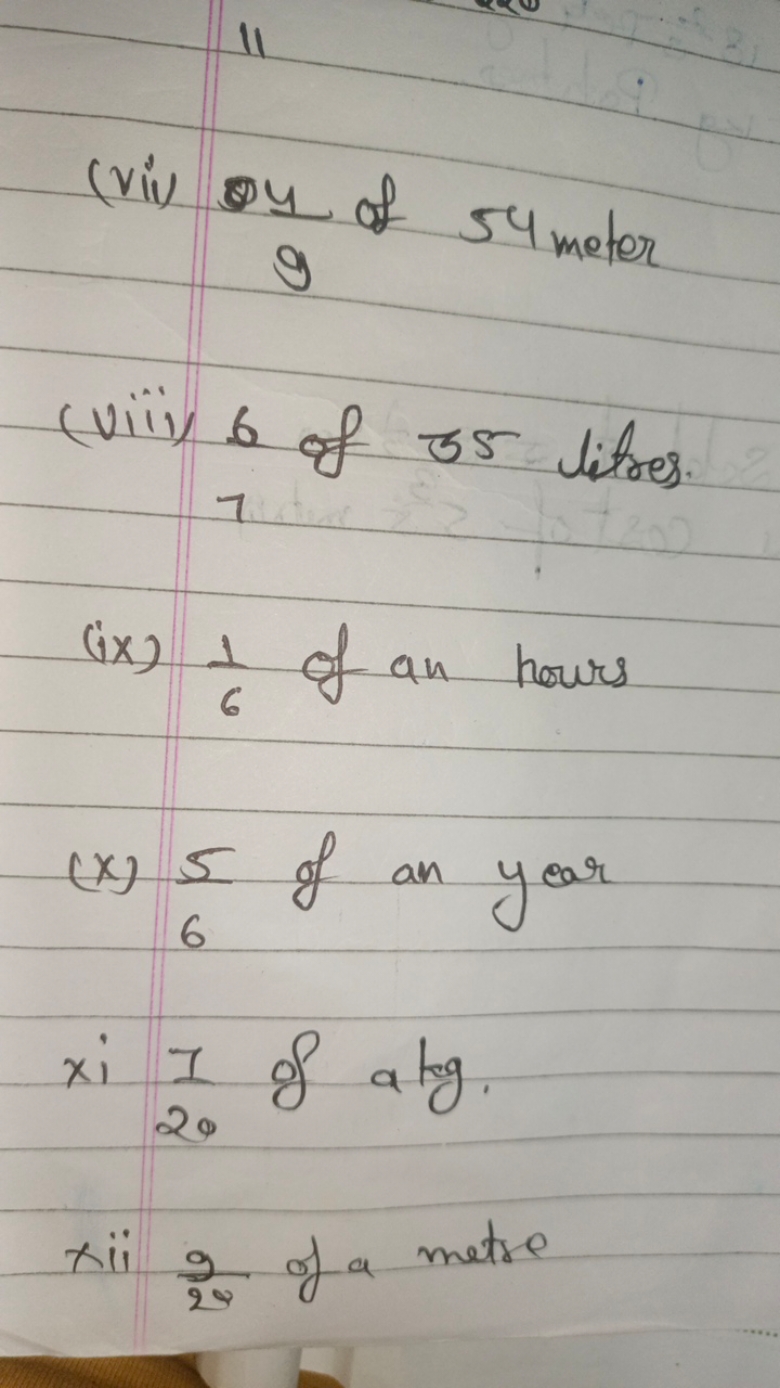 11
(vii) 4/9 of 54 meter
(viii) 6/7 of 35 litres.
(ix) 1/6 of an hours
(x) 5/6 of an year
xi 7/20 of a kg.
xii 9/20 of a metre